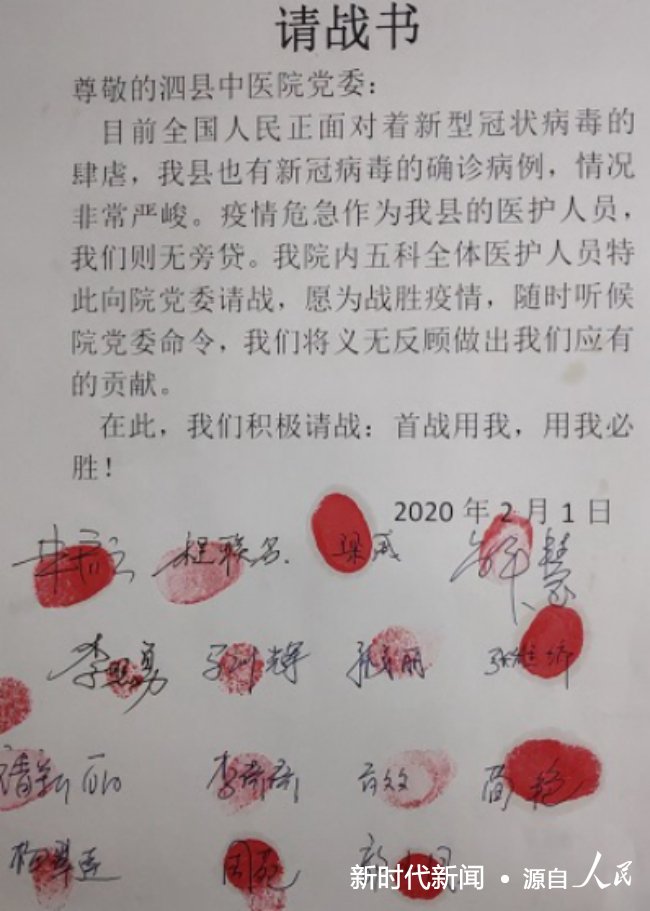 请战书
尊敬的泗县中医院党委：
目前全国人民正面对着新型冠状病毒的
肆虐，我县也有新冠病毒的确诊病例，情况
非常严峻。疫情危急作为我县的医护人员，
我们则无旁贷。我院内五科全体医护人员特
此向院党委请战，愿为战胜疫情，随时听候
院党委命令，我们将义无反顾做出我们应有
的贡献。
在此，我们积极请战：首战用我，用我必
胜！
2020 年 2 月 1 日
程联名 梁威
李 勇
新时代新闻 • 源自人民